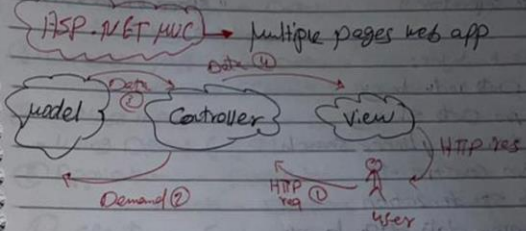 ASP.NET MVC → Multiple pages web app
Data ④
Data
Model
Controller
View
HTTP res
Demand ②
HTTP req ①
user